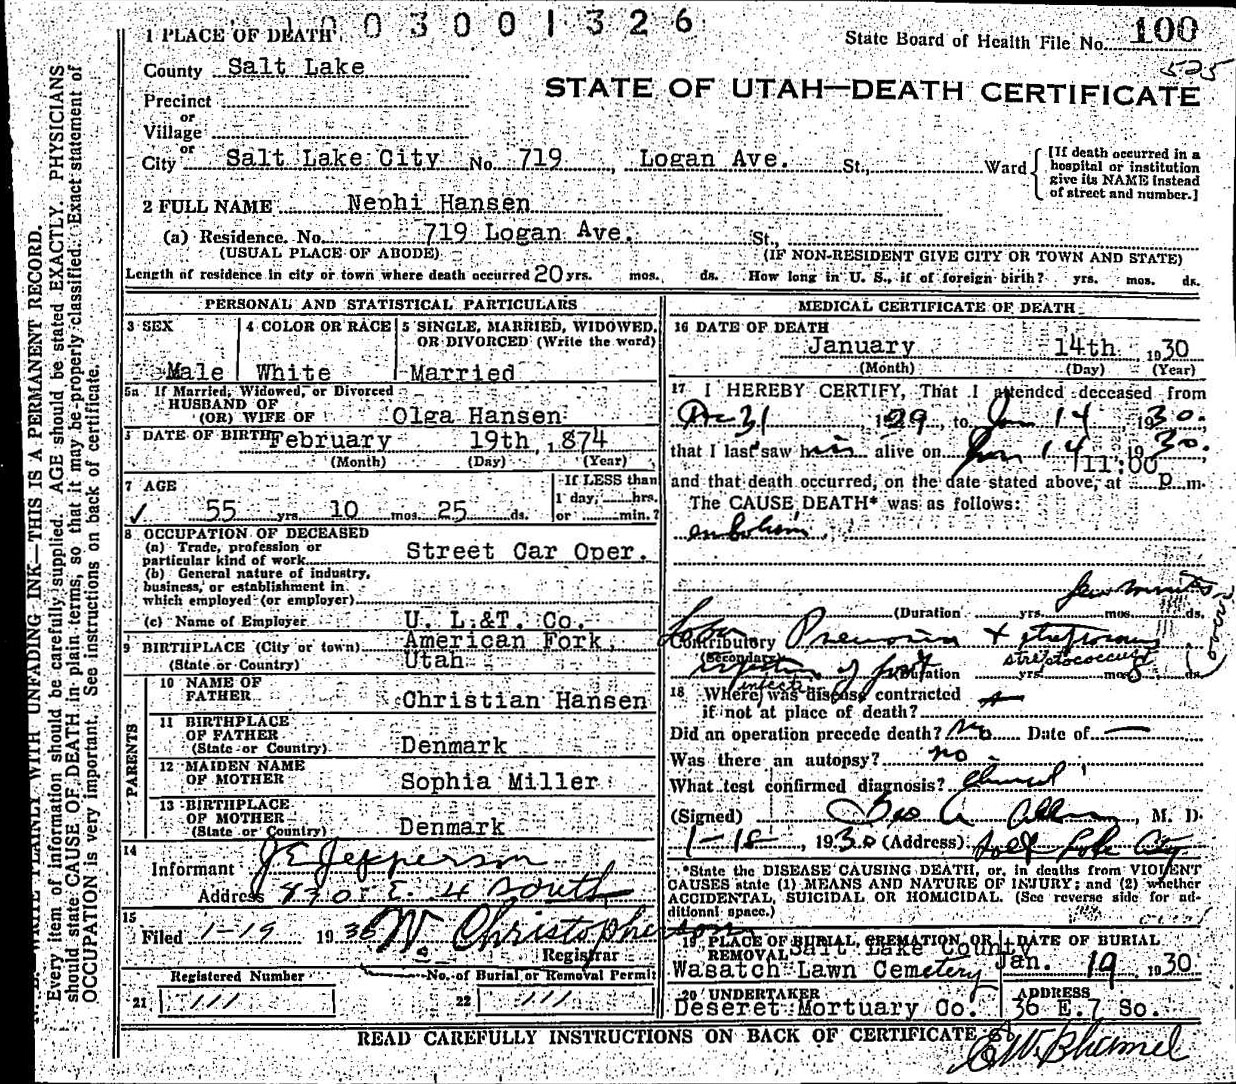 003001326
1 PLACE OF DEATH
State Board of Health File No. 100
525
County Salt Lake
STATE OF UTAH—DEATH CERTIFICATE
Precinct
or
Village
or
City Salt Lake City No. 719 Logan Ave. St., Ward
[If death occurred in a
hospital or institution
give its NAME instead
of street and number.]
2 FULL NAME Nephi Hansen
(a) Residence. No. 719 Logan Ave. St.,
(USUAL PLACE OF ABODE) (IF NON-RESIDENT GIVE CITY OR TOWN AND STATE)
Length of residence in city or town where death occurred 20 yrs. mos. ds. How long in U. S., if of foreign birth? yrs. mos. ds.
PERSONAL AND STATISTICAL PARTICULARS
3 SEX
Male
4 COLOR OR RACE
White
5 SINGLE, MARRIED, WIDOWED,
OR DIVORCED (Write the word)
Married
5a If Married, Widowed, or Divorced
HUSBAND OF
(OR) WIFE OF Olga Hansen
DATE OF BIRTH February 19th, 874
(Month) (Day) (Year)
7 AGE
55 yrs. 10 mos. 25 ds.
If LESS than
1 day, hrs.
or min.?
8 OCCUPATION OF DECEASED
(a) Trade, profession or
particular kind of work Street Car Oper.
(b) General nature of industry,
business, or establishment in
which employed (or employer)
(c) Name of Employer U. L.&T. Co.
9 BIRTHPLACE (City or town) American Fork,
(State or Country) Utah
PARENTS
10 NAME OF
FATHER Christian Hansen
11 BIRTHPLACE
OF FATHER
(State or Country) Denmark
12 MAIDEN NAME
OF MOTHER Sophia Miller
13 BIRTHPLACE
OF MOTHER
(State or Country) Denmark
14
Informant J E Jepperson
Address E. 4 South
15
Filed 1-19 1930 W. Christopherson
Registrar
Registered Number No. of Burial or Removal Permit
21 111 22 111
MEDICAL CERTIFICATE OF DEATH
16 DATE OF DEATH
January 14th, 1930
(Month) (Day) (Year)
17 I HEREBY CERTIFY, That I attended deceased from
Dec 31, 1929, to Jan 14, 1930.
that I last saw him alive on Jan 14 1930.
11:00
and that death occurred, on the date stated above, at p. m.
The CAUSE DEATH* was as follows:
embolism
few minutes
(Duration) yrs. mos. ds.
(over)
Lobar Pneumonia +
Contributory
(Secondary)
streptococcus
infection of foot
infection
Duration yrs. mos. ds.
18 Where was disease contracted
if not at place of death?
Did an operation precede death? No Date of —
Was there an autopsy? no
What test confirmed diagnosis? Clinical
(Signed) Geo A Allen, M. D.
1-18, 1930 (Address) Salt Lake City
*State the DISEASE CAUSING DEATH, or, in deaths from VIOLENT
CAUSES state (1) MEANS AND NATURE OF INJURY; and (2) whether
ACCIDENTAL, SUICIDAL OR HOMICIDAL. (See reverse side for ad-
ditional space.)
19 PLACE OF BURIAL, CREMATION, OR
REMOVAL Salt Lake County
Wasatch Lawn Cemetery
DATE OF BURIAL
Jan. 19, 1930
20 UNDERTAKER
Deseret Mortuary Co.
ADDRESS
36 E. 7 So.
READ CAREFULLY INSTRUCTIONS ON BACK OF CERTIFICATE
WRITE PLAINLY WITH UNFADING INK—THIS IS A PERMANENT RECORD.
Every item of information should be carefully supplied. AGE should be stated EXACTLY. PHYSICIANS
should state CAUSE OF DEATH in plain terms, so that it may be properly classified. Exact statement of
OCCUPATION is very important. See instructions on back of certificate.